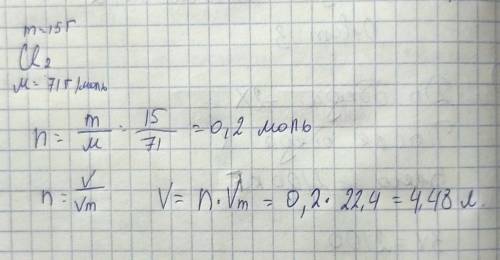 m=15г
Cl₂
M=71г/моль
n = m/M = 15/71 = 0,2 моль
n = V/Vm V = n·Vm = 0,2·22,4 = 4,48 л.